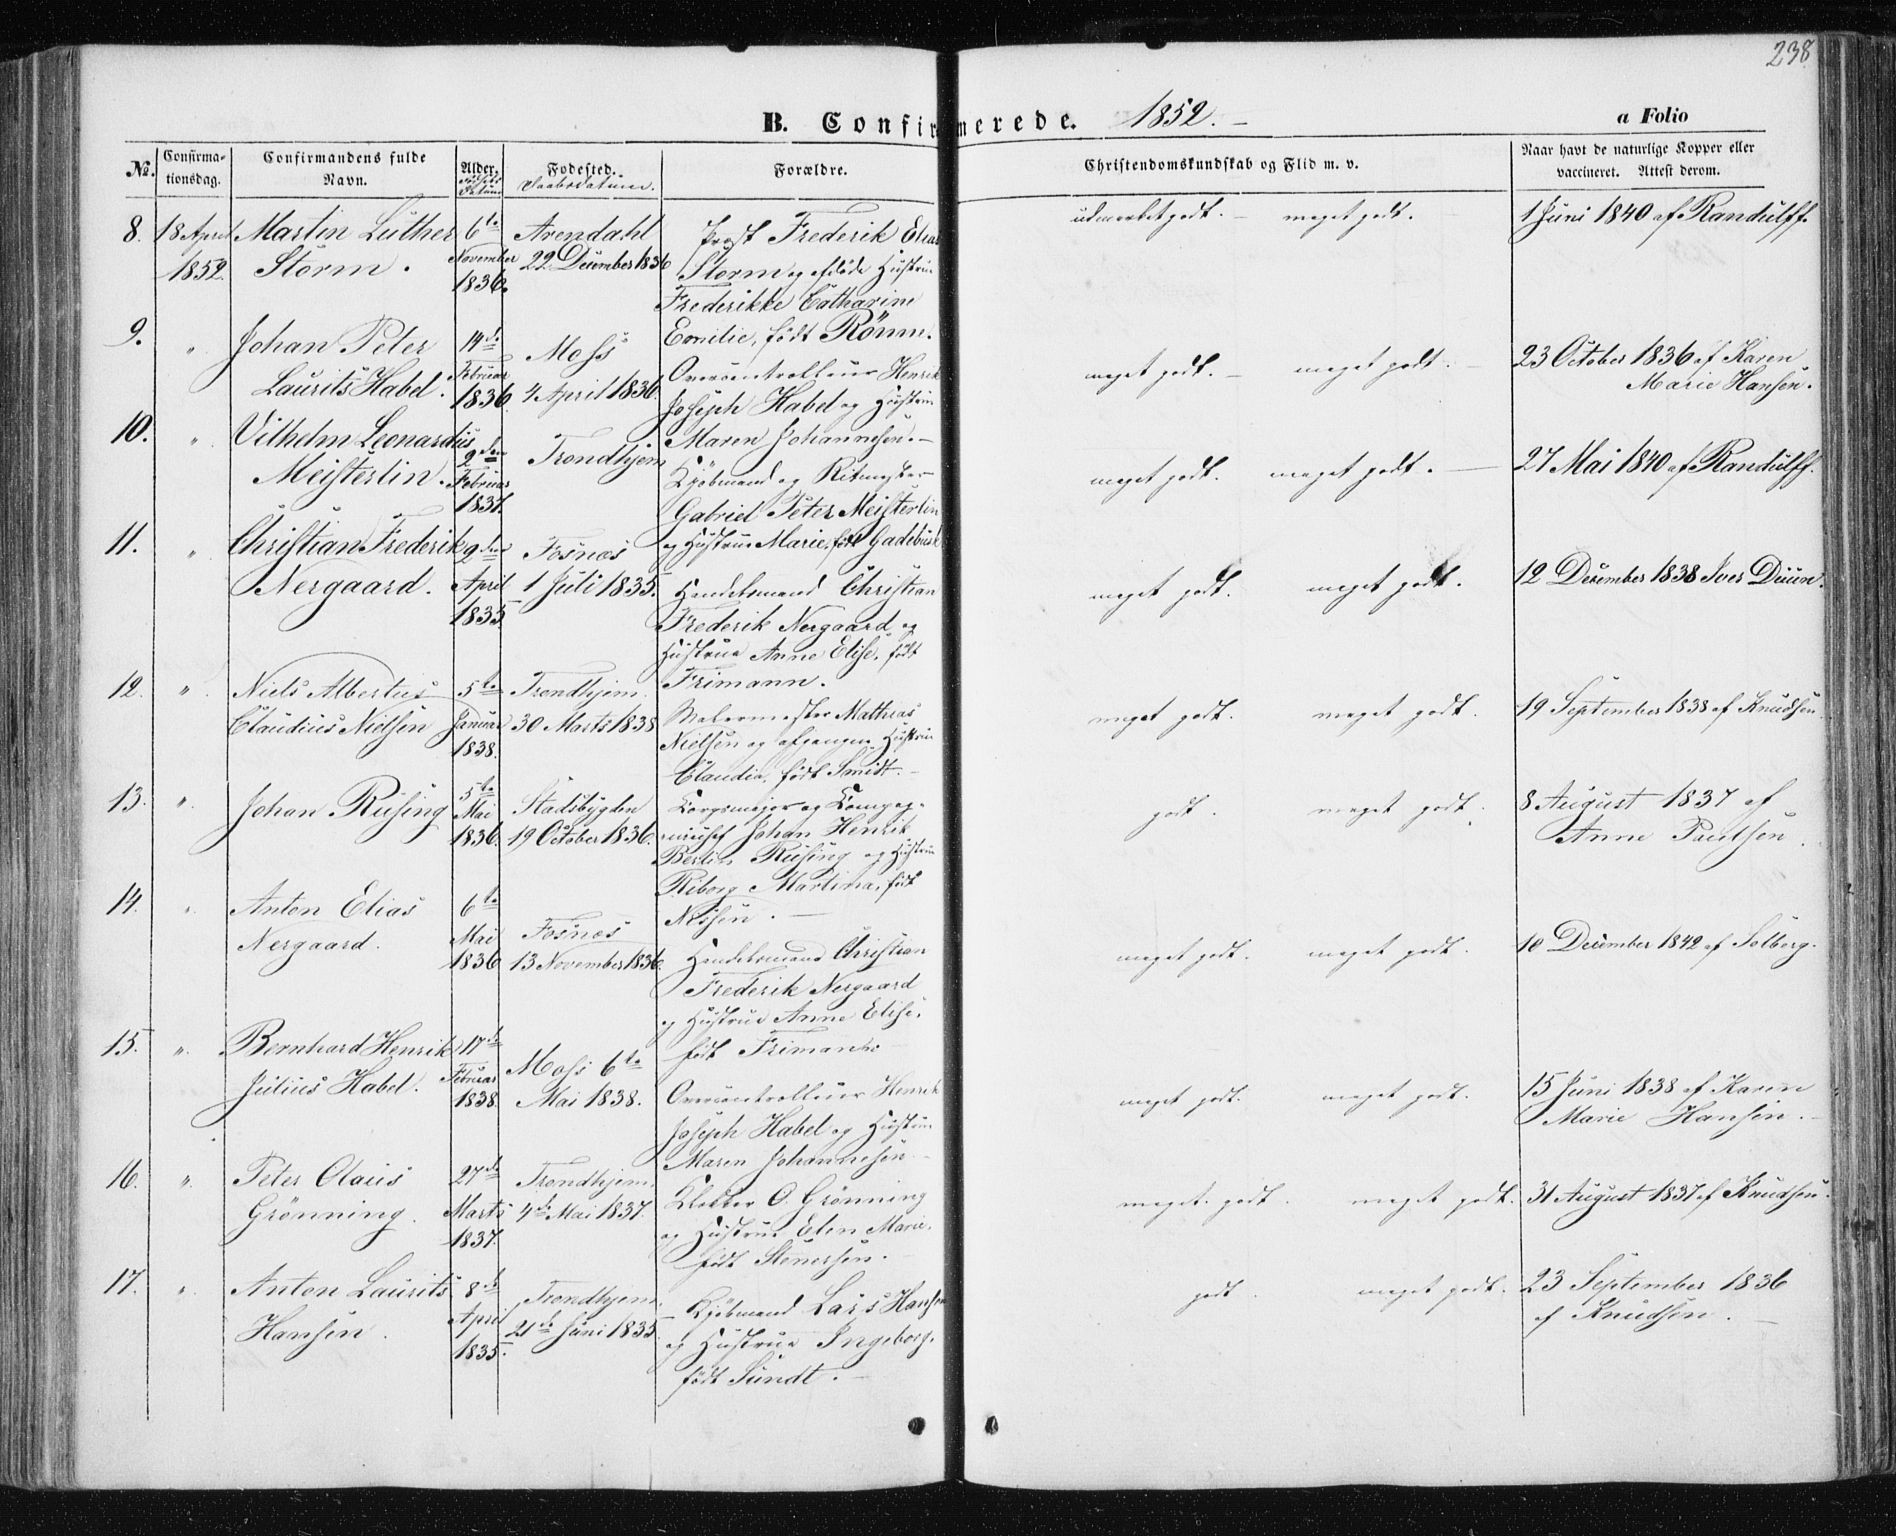 238
B. Confirmerede. 1852.
a Folio
No. Confirmationsdag. Confirmandens fulde Navn. Alder. Fødested. Daabsdatum. Forældre. Christendomskundskab og Flid m. v. Naar havt de naturlige Kopper eller vaccineret. Attest derom.
8. 18 April Martin Luther 6te Arendahl Provst Frederik Elias udmærket godt. meget godt. 1 Juni 1840 af Randulff.
1852. Storm. November 22 December 1836 Storm og afdøde Hustrue
1836. Frederikke Catharine
Emilie, født Rönne.
9. " Johan Peter 14de Moss Overcontrolleur Henrik meget godt. meget godt. 23 October 1836 af Karen
Laurits Habel. Februar 4 April 1836. Joseph Habel og Hustrue Marie Hansen.
1836 Maren Johannesen.
10. " Vilhelm Leonardus 2den Trondhjem Kjöbmand og Ritmester meget godt. meget godt. 27 Mai 1840 af Randulff.
Meisterlin. Februar Gabriel Peter Meisterlin
1837. og Hustrue Marie, født Gadebusk
11. " Christian Frederik 2den Fosnæs Handelsmand Christian meget godt. meget godt. 12 December 1838 Iver Duun.
Nergaard. April 1 Juli 1835. Frederik Nergaard og
1835 Hustrue Anne Elise, født
Frimann.
12. " Niels Albertus 5te Trondhjem. Malermester Mathias meget godt. meget godt. 19 September 1838 af Knudsen.
Claudius Nielsen Januar 30 Marts 1838 Nielsen og afgangne Hustrue
1838. Claudia, født Smidt.
13. " Johan Rusing 5te Stadsbygden Corpsmajor og Compag- godt. meget godt. 8 August 1837 af
Mai 19 October 1836. nichef Johan Henrik Anne Paulsen.
1836. Berlin Rusing og Hustrue
Riborg Martina, født
Nissen.
14. " Anton Elias 6te Fosnæs Handelsmand Christian meget godt. meget godt. 10 December 1842 af Solberg.
Nergaard. Mai 13 November 1836. Frederik Nergaard
1836 og Hustrue Anne Elise,
født Frimann.
15. " Bernhard Henrik 17de Moss 6te Overcontrolleur Henrik meget godt. meget godt. 15 Juni 1838 af Karen
Julius Habel. Februar Mai 1838. Joseph Habel og Hustrue Marie Hansen.
1838. Maren Johannesen.
16. " Peter Olaus 27de Trondhjem. Klokker O. Grönning meget godt. meget godt. 31 August 1837 af Knudsen.
Grönning. Marts 4de Mai 1837. og Hustrue Elen Marie,
1837. født Stenersen.
17. " Anton Laurits 8de Trondhjem. Kjöbmand Lars Hansen godt. meget godt. 23 September 1836
Hansen. April 21de Juni 1835 og Hustrue Ingeborg, af Knudsen.
1835. født Sundt.